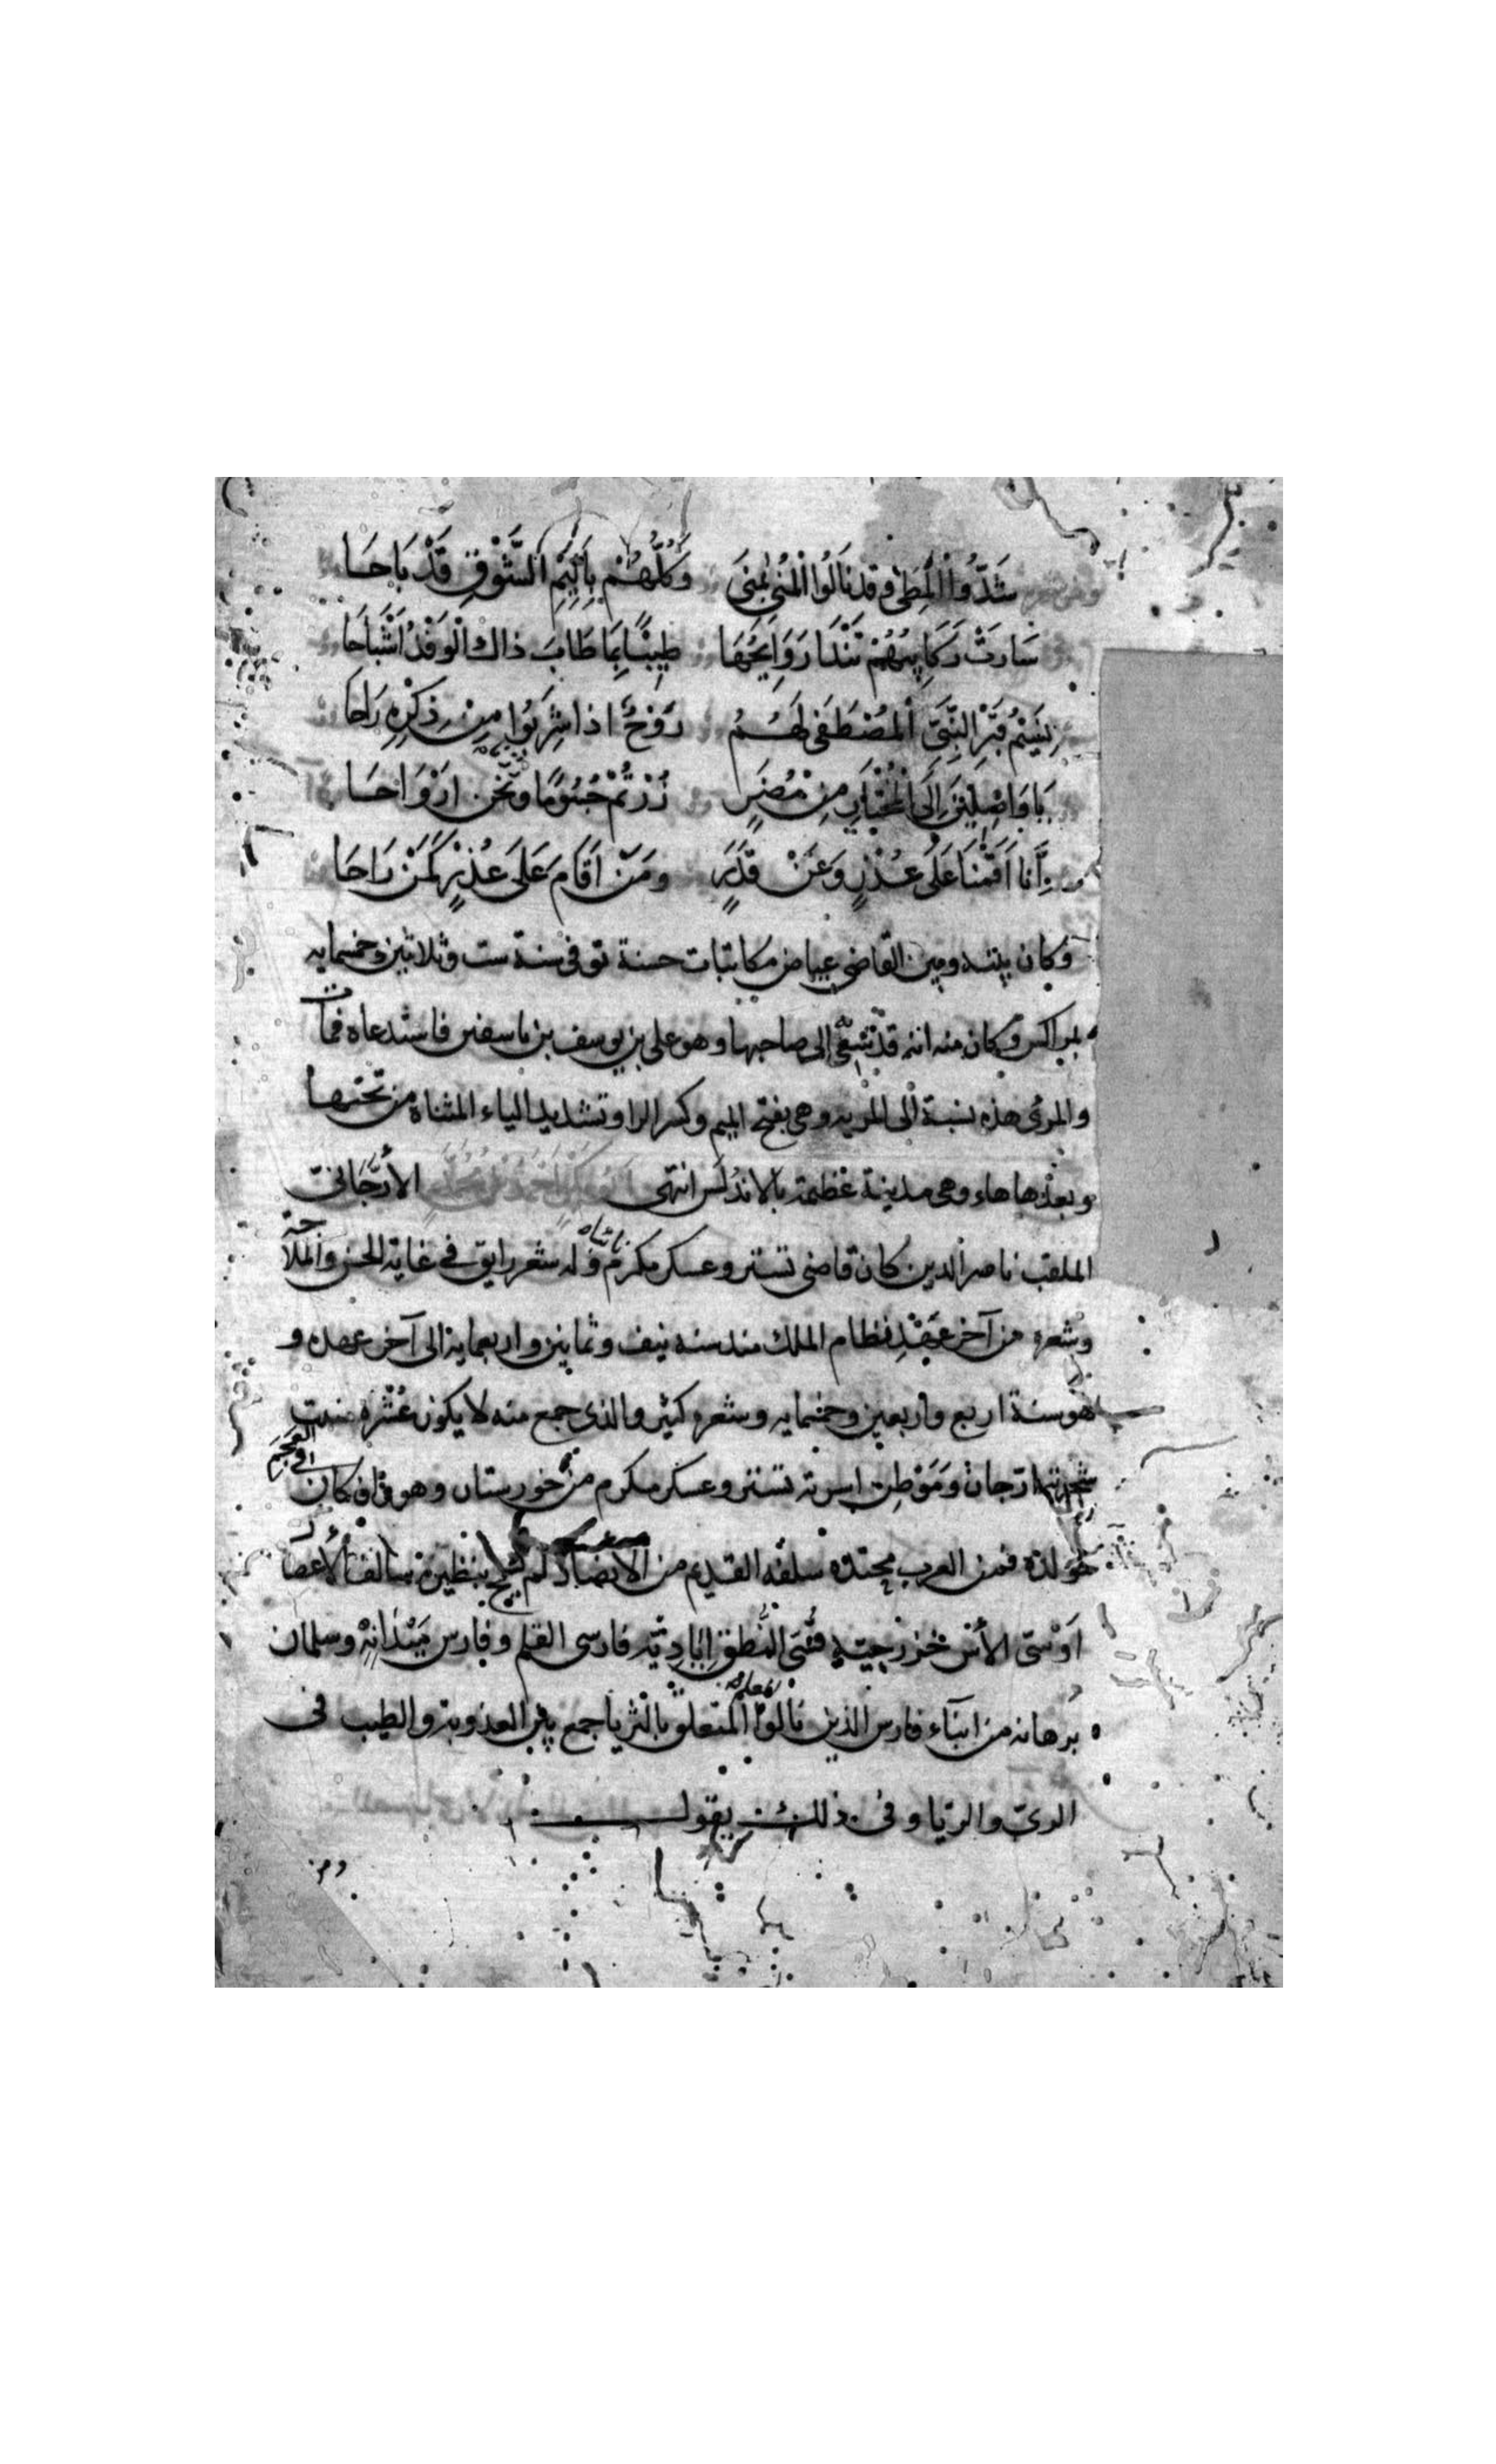 شَدُّوا الْمَطِيَّ وقد نَالُوا الْمُنَى بِمِنَى وَكُلُّهُمْ بِأَلِيمِ الشَّوْقِ قَدْ بَاحَا
سَارَتْ رَكَائِبُهُمْ تَنْدَا رَوَايِحُهَا طِيبًا بِمَا طَابَ ذاك الْوَفْدُ اَشْبَاحَا
نَسِيْمُ قَبْرِ النَّبِيِّ اَلمُصْطَفَى لَهُمُ رَوْحٌ اذا شَرِبُوا مِنْ ذِكْرِهِ رَاحَا
يَا وَاصِلِيْنَ اِلَى الْمُخْتَارِ مِنْ مُضَرٍ زُرْتُمْ جُسُومًا ونَحْنُ اَرْوَاحَا
اِنَّا اَقَمْنَا عَلَى عُذْرٍ وَعَنْ قَدَرٍ ومَنْ اَقَامَ عَلَى عُذْرٍ كَمَنْ رَاحَا
وكان بينه وبين القاضي عياض مكاتبات حسنة توفى سنة ست وثلاثين وخمسمايه
بمراكش وكان منه انه قد سُعِيَ الى صاحبها وهو على بن يوسف بن تاسفين فاستدعاه فمات
والمرئى هذه نسبة الى المريه وهى بفتح الميم وكسر الرا وتشديد الياء المثناة من تحتها
وبعدها هاء وهى مدينة عظيمة بالاندلس انتهى اَبُو بَكْرٍ اَحْمَدُ بْنُ مُحَمَّدٍ الأَرَّجَانِىّ
الملقب ناصر الدين كان قاضى تستر وعسكر مكرم وله شعر رايق في غاية الحسن والملاحة
وشعره من آخر عَهْدِ نظام الملك منذ سنه نيف وثمانين واربعمايه الى آخر عهده و
هو سنة اربع واربعين وخمسمايه وشعره كثير والذى جمع منه لا يكون عُشْرَه منبت
شجرته ارّجان ومَوْطِن اسرته تستر وعسكر مكرم من خورستان وهو وان كان فى العَجَمِ
مولده فمن العرب محتده سلفه القديم من الأنصار لم يسمح بنظيره سالف الأعصار
اَوْسىّ الأُسّ خَزْرَجِيّه قُسّىّ النُّطْقِ اِيَادِيّه فارسى القلم وفارس مَيْدَانِهِ وسلمان
بُرهانه من ابناء فارس الذين نالوا المتعلق بالثريا جمع بين العذوبة والطيب فى
الرىّ والريّا وفى ذلك يقول